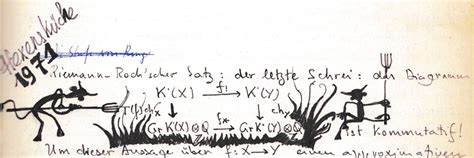 Hexenküche
1971
Riemann-Roch'scher Satz : der letzte Schrei : das Diagramm
K˙(X) f! → K˙(Y)
ch
Gr K˙(X)⊗Q f* → Gr K˙(Y)⊗Q
ist kommutatif!
Um dieser Aussage über f: X→Y einen approximativen